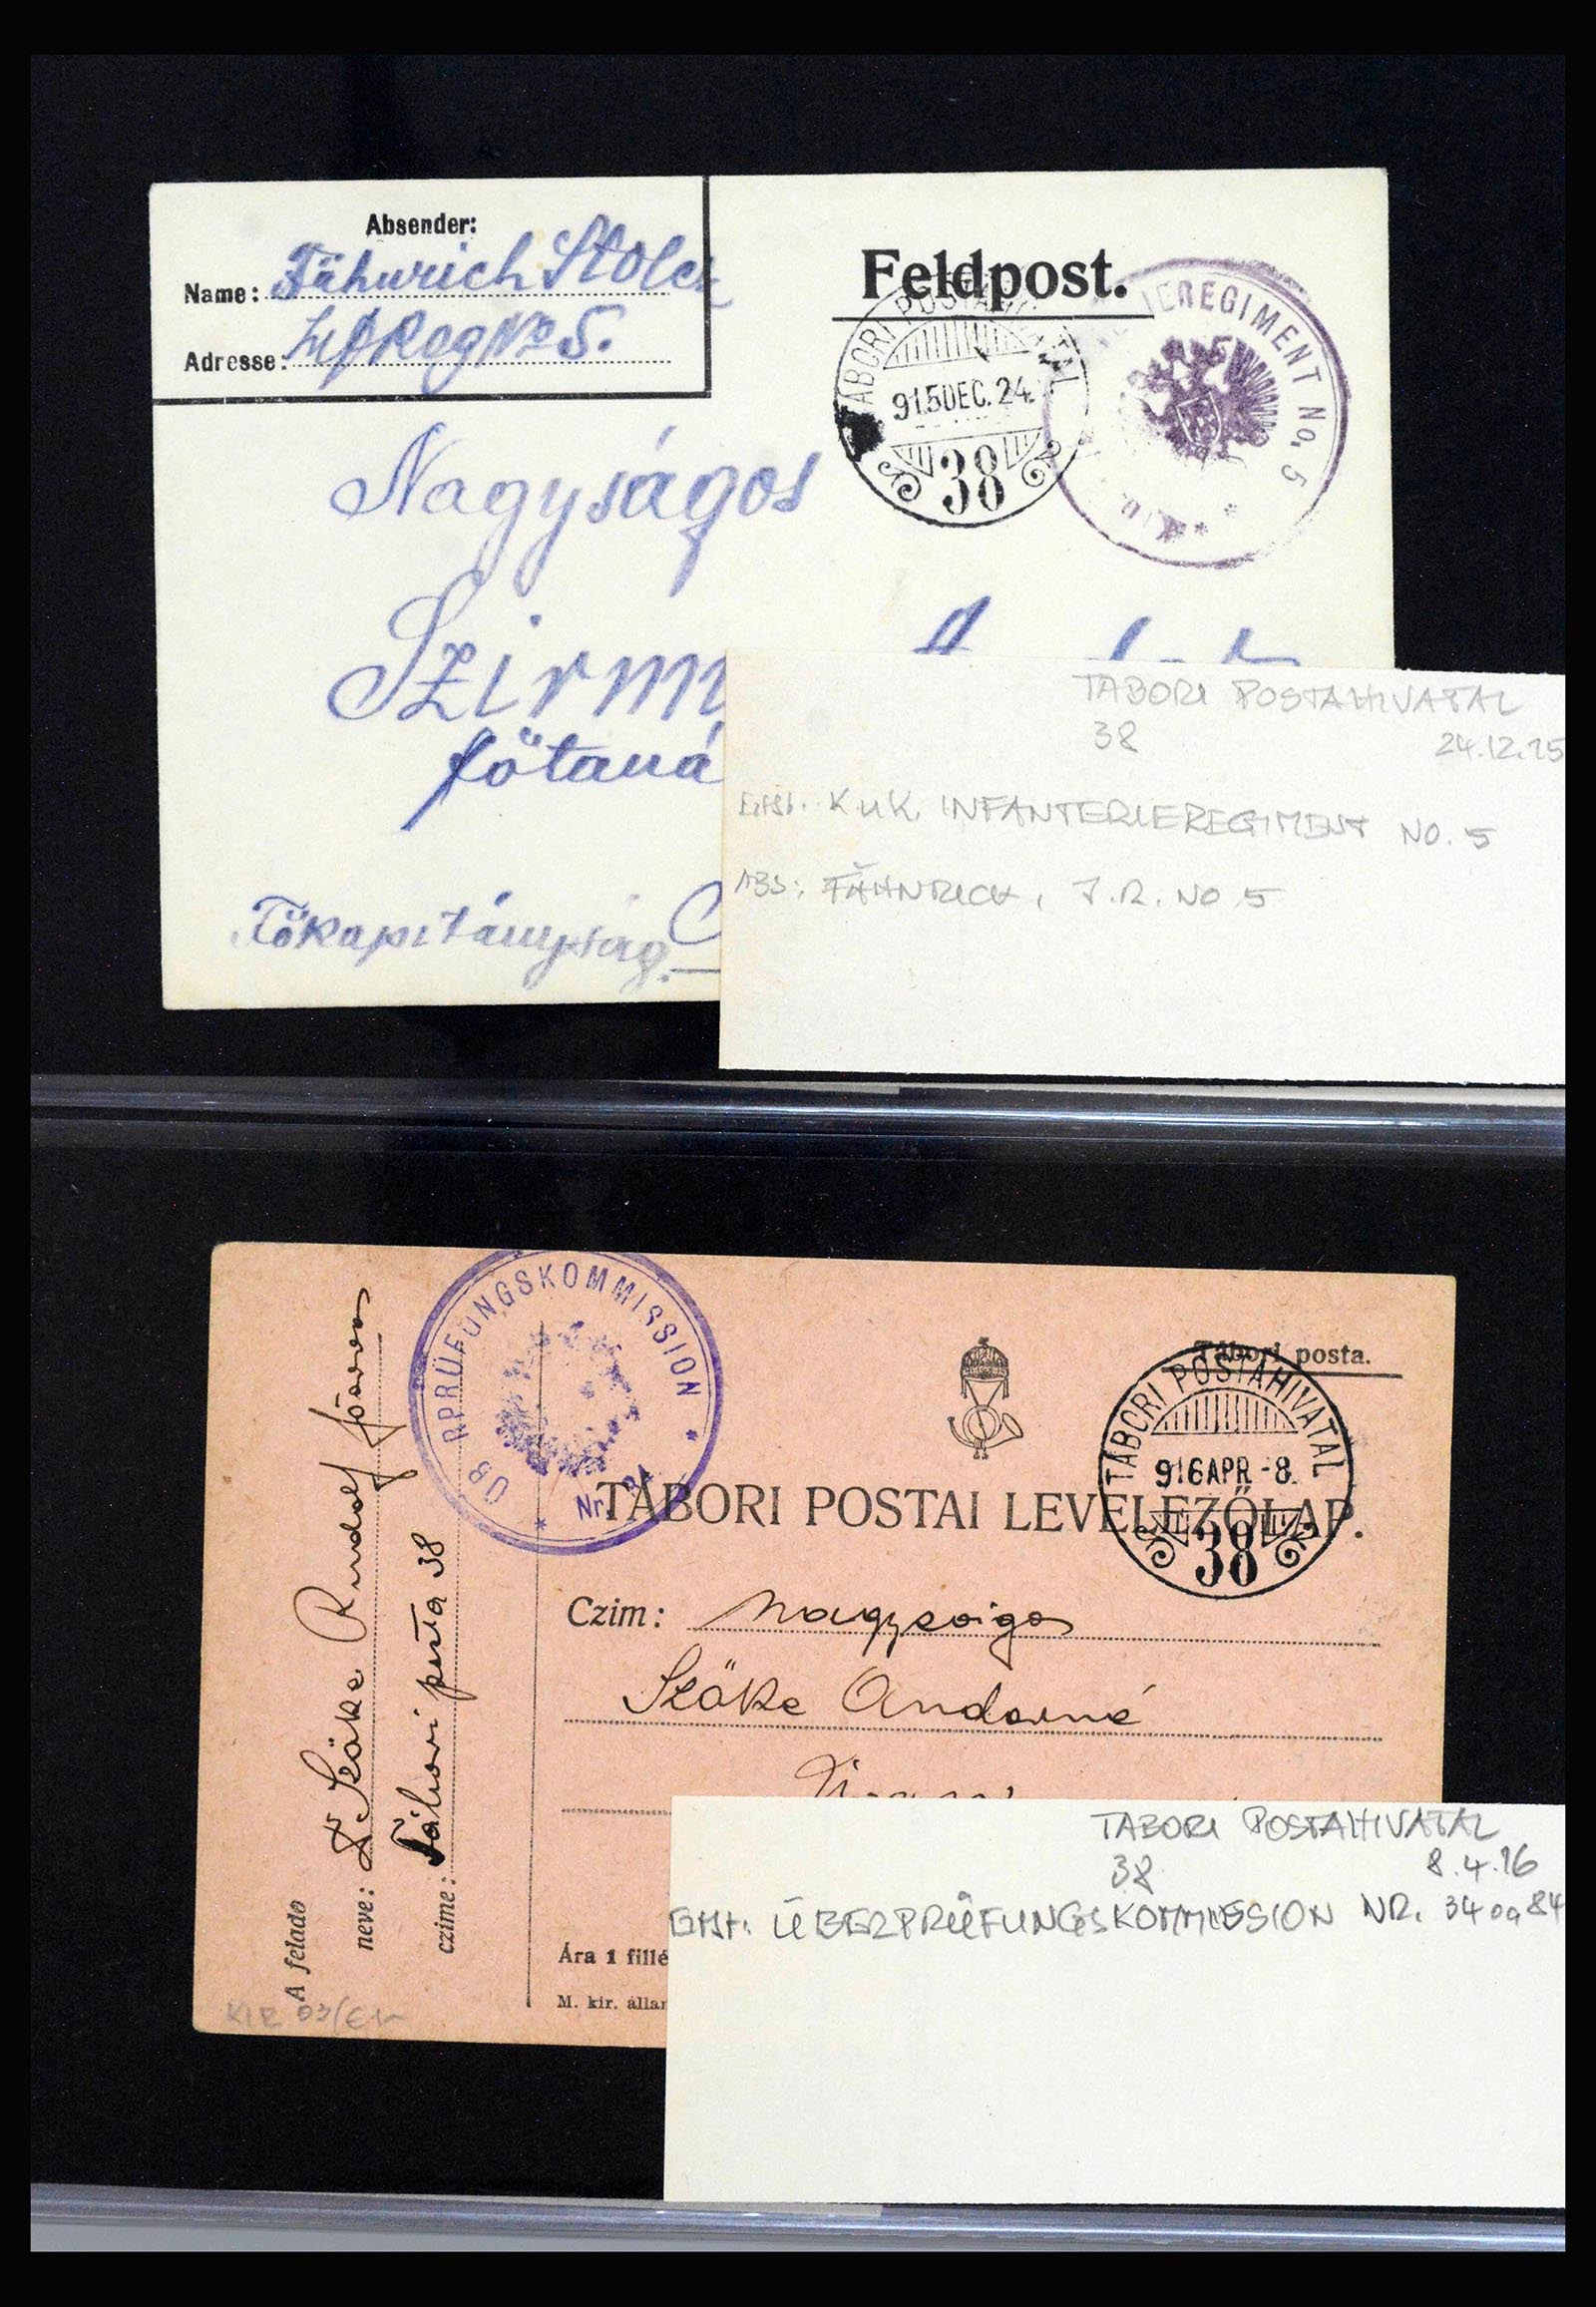 Absender:
Name: Fähnrich Stolcz
Adresse: Inf Reg No 5.
Feldpost.
TÁBORI POSTAHIVATAL
915 DEC. 24.
38
IEREGIMENT No. 5
Nagyságos
Szirm
főtaná
Főkapitányság.
TABORI POSTAHIVATAL
38 24.12.15
K.u.K. INFANTERIEREGIMENT NO. 5
ABS: FÄHNRICH, J.R. NO 5
ÜB RPRÜFUNGSKOMMISSION
* Nr. *
Tábori posta.
TÁBORI POSTAHIVATAL
916 APR -8.
38
TÁBORI POSTAI LEVELEZŐLAP.
Czim: Nagyságos
Szőke Andorné
A feladó
neve: Dr Szőke Rudolf
czime: Tábori posta 38
Ára 1 fillé
M. kir. állam
KIR 03/
TABORI POSTAHIVATAL
38 8.4.16
ÜBERPRÜFUNGSKOMMISSION NR. 34 od 84